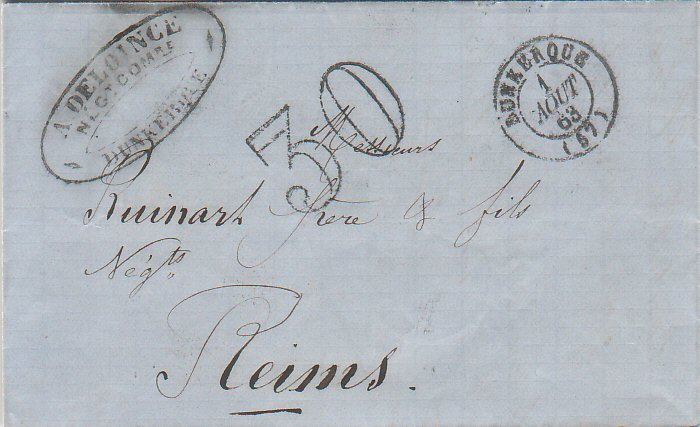 A DELOINCE
NEGT COMRE
DUNKERQUE
30
DUNKERQUE
1
AOUT
63
(57)
Messieurs
Ruinart Père & fils
Négts
Reims.